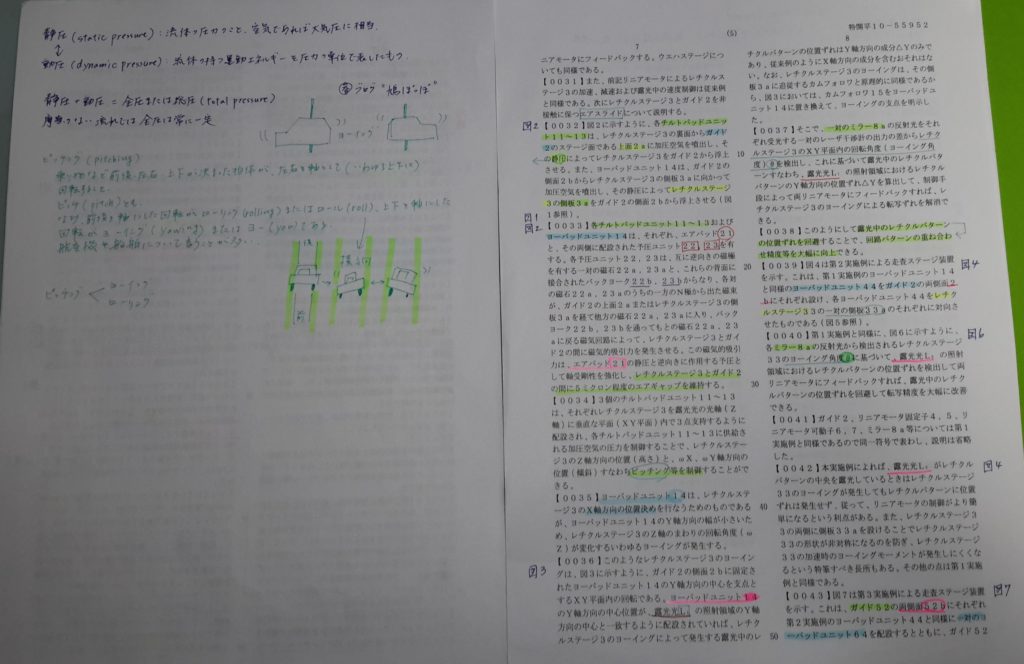 静圧(static pressure):流体の圧力のこと、空気であれば大気圧に相当.
動圧(dynamic pressure):流体の持つ運動エネルギーを圧力の単位で表したもの.
静圧+動圧=全圧または総圧(total pressure)
摩擦のない流れでは全圧は常に一定
ブログ "鳩ぽっぽ"
ヨーイング
ピッチング(pitching)
乗り物など前後・左右・上下の決まった物体が、左右を軸として
回転すること.
ピッチ(pitch)とも.
なお、前後を軸にした回転がローリング(rolling)またはロール(roll)、上下を軸にした
回転がヨーイング(yawing)またはヨー(yaw)である.
ピッチング
ヨーイング
ローリング
特開平10-55952
(5)
7
リニアモータにフィードバックする。ウエハステージに
ついても同様である。
【0031】また、前記リニアモータによるレチクルス
テージ3の加速、減速および露光中の速度制御は従来例
と同様である。次にレチクルステージ3とガイド2を非
接触に保つエアスライドについて説明する。
図2
【0032】図2に示すように、各チルトパッドユニット
11~13は、レチクルステージ3の裏面からガイド
2のステージ面である上面2aに加圧空気を噴出し、そ
の静圧によってレチクルステージ3をガイド2から浮上
させる。また、ヨーパッドユニット14は、ガイド2の
側面2bからレチクルステージ3の側板3aに向かって
加圧空気を噴出し、その静圧によってレチクルステージ
3の側板3aをガイド2の側面2bから浮上させる(図
1参照)。
図1
図2
【0033】各チルトパッドユニット11~13および
ヨーパッドユニット14は、それぞれ、エアパッド21
と、その両側に配設された予圧ユニット22,23を有
する。各予圧ユニット22,23は、互に逆向きの磁極
を有する一対の磁石22a,23aと、これらの背面に
接合されたバックヨーク22b,23bからなり、各対
の磁石22a,23aのうちの一方のN極から出た磁束
が、ガイド2の上面2aまたはレチクルステージ3の側
板3aを経て他方の磁石22a,23aに入り、バック
ヨーク22b,23bを通ってもとの磁石22a,23
aに戻る磁気回路によって、レチクルステージ3とガイ
ド2の間に磁気的吸引力を発生させる。この磁気的吸引
力は、エアパッド21の静圧と逆向きに作用する予圧と
して軸受剛性を強化し、レチクルステージ3とガイド2
の間に5ミクロン程度のエアギャップを維持する。
【0034】3個のチルトパッドユニット11~13
は、それぞれレチクルステージ3を露光光の光軸(Z
軸)に垂直な平面(XY平面)内で3点支持するように
配設され、各チルトパッドユニット11~13に供給さ
れる加圧空気の圧力を制御することで、レチクルステー
ジ3のZ軸方向の位置(高さ)と、ωX,ωY軸方向の
位置(傾斜)すなわちピッチング等を制御することがで
きる。
【0035】ヨーパッドユニット14は、レチクルステー
ジ3のX軸方向の位置決めを行なうためのものである
が、ヨーパッドユニット14のY軸方向の幅が小さいた
め、レチクルステージ3のZ軸のまわりの回転角度(ω
Z)が変化するいわゆるヨーイングが発生する。
図3
【0036】このようなレチクルステージ3のヨーイン
グは、図3に示すように、ガイド2の側面2bに固定さ
れたヨーパッドユニット14のY軸方向の中心を支点と
するXY平面内の回転である。ヨーパッドユニット14
のY軸方向の中心位置が、露光光L₁の照射領域のY軸
方向の中心と一致するように配設されていれば、レチク
ルステージ3のヨーイングによって発生する露光中のレ
10
20
30
40
50
8
チクルパターンの位置ずれはY軸方向の成分△Yのみで
あり、従来例のようにX軸方向の成分を含むおそれはな
い。なお、レチクルステージ3のヨーイングは、その側
板3aに追従するカムフォロワと原理的に同様であるか
ら、図3においては、カムフォロワ15をヨーパッドユ
ニット14に置き換えて、ヨーイングの支点を明示し
た。
【0037】そこで、一対のミラー8aの反射光をそれ
ぞれ受光する一対のレーザ干渉計の出力の差からレチク
ルステージ3のXY平面内の回転角度(ヨーイング角
度)θを検出し、これに基づいて露光光L₁の照射
領域におけるレチクルパ
ターンのY軸方向の位置ずれ△Yを算出して、制御手
段によって両リニアモータにフィードバックすれば、レ
チクルステージ3のヨーイングによる転写ずれを解消で
きる。
【0038】このようにして露光中のレチクルパターン
の位置ずれを回避することで、回路パターンの重ね合わ
せ精度等を大幅に向上できる。
図4
【0039】図4は第2実施例による走査ステージ装置
を示す。これは、第1実施例のヨーパッドユニット14
と同様のヨーパッドユニット44をガイド2の両側面2
bにそれぞれ設け、各ヨーパッドユニット44をレチク
ルステージ33の一対の側板33aのそれぞれに対向さ
せたものである(図5参照)。
図6
【0040】第1実施例と同様に、図6に示すように、
各ミラー8aの反射光から検出されるレチクルステージ
33のヨーイング角度θに基づいて、露光光L₁の照射
領域におけるレチクルパターンの位置ずれを検出して両
リニアモータにフィードバックすれば、露光中のレチク
ルパターンの位置ずれを回避して転写精度を大幅に改善
できる。
【0041】ガイド2、リニアモータ固定子4,5、リ
ニアモータ可動子6,7、ミラー8a等については第1
実施例と同様であるので同一符号で表わし、説明は省略
した。
図4
【0042】本実施例によれば、露光光L₁がレチクル
パターンの中央を露光しているときはレチクルステージ
33のヨーイングが発生してもレチクルパターンに位置
ずれは発生せず、従って、リニアモータの制御がより簡
単になるという利点がある。また、レチクルステージ3
3の両側に側板33aを設けることでレチクルステージ
33の形状が非対称になるのを防ぎ、レチクルステージ
33の加速時のヨーイングモーメントが発生しにくくな
るという特筆すべき長所もある。その他の点は第1実施
例と同様である。
図7
【0043】図7は第3実施例による走査ステージ装置
を示す。これは、ガイド52の両側面52bにそれぞれ
第2実施例のヨーパッドユニット44と同様に一対のヨ
ーパッドユニット64を配設するとともに、ガイド52